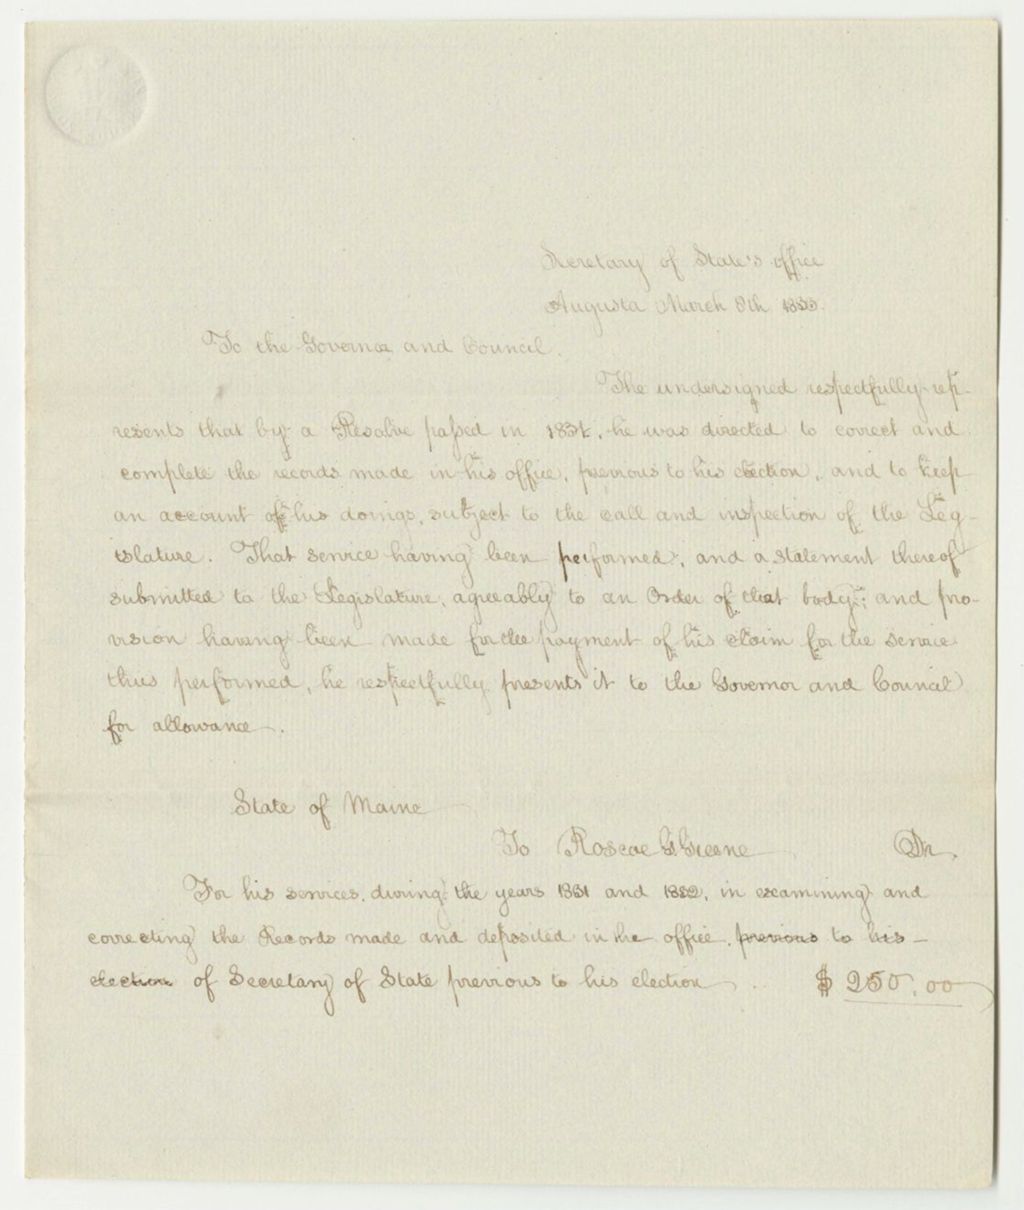 Secretary of State's office
Augusta March 8th 1833.
To the Governor and Council.
The undersigned respectfully rep-
resents that by a Resolve passed in 1831, he was directed to correct and
complete the records made in his office, previous to his election, and to keep
an account of his doings, subject to the call and inspection of the Leg-
islature. That service having been performed; and a statement thereof
submitted to the Legislature, agreeably to an Order of that body; and pro-
vision having been made for the payment of his claim for the service
thus performed, he respectfully presents it to the Governor and Council
for allowance.
State of Maine
To Roscoe G Greene Dr.
For his services, during the years 1831 and 1832, in examining and
correcting the Records made and deposited in the office, previous to his
election of Secretary of State previous to his election $ 250.00